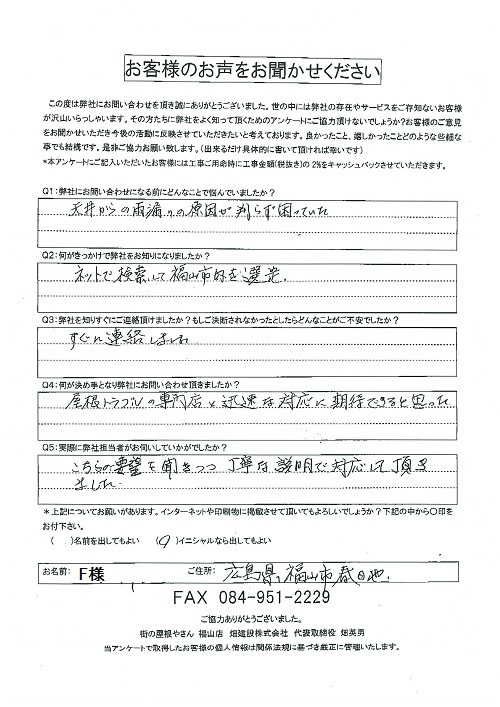 お客様のお声をお聞かせください
この度は弊社にお問い合わせを頂き誠にありがとうございました。世の中には弊社の存在やサービスをご存知ないお客様
が沢山いらっしゃいます。その方たちに弊社をよく知って頂くためのアンケートにご協力頂けないでしょうか?お客様のご意見
をお聞かせいただき今後の活動に反映させていただきたいと考えております。良かったこと、嬉しかったことどのような些細な
事でも結構です。是非ご協力お願い致します。(出来るだけ具体的に書いて頂ければ幸いです)
*本アンケートにご記入いただいたお客様には工事ご用命時に工事金額(税抜き)の2%をキャッシュバックさせていただきます。
Q1:弊社にお問い合わせになる前にどんなことで悩んでいましたか?
天井からの雨漏りの原因が判らず困っていた
Q2:何がきっかけで弊社をお知りになりましたか?
ネットで検索して福山市内を選定.
Q3:弊社を知りすぐにご連絡頂けましたか?もしご決断されなかったとしたらどんなことがご不安でしたか?
すぐに連絡しました
Q4:何が決め手となり弊社にお問い合わせ頂きましたか?
屋根トラブルの専門店と迅速な対応に期待できると思った
Q5:実際に弊社担当者がお伺いしていかがでしたか?
こちらの要望を聞きつつ丁寧な説明で対応して頂き
ました.
*上記についてお願いがあります。インターネットや印刷物に掲載させて頂いてもよろしいでしょうか?下記の中から〇印を
お付下さい。
( )名前を出してもよい (〇)イニシャルなら出してもよい
お名前: F様 ご住所: 広島県福山市春日池.
FAX 084-951-2229
ご協力ありがとうございました。
街の屋根やさん 福山店 畑建設株式会社 代表取締役 畑英男
当アンケートで取得したお客様の個人情報は関係法規に基づき厳正に管理いたします。